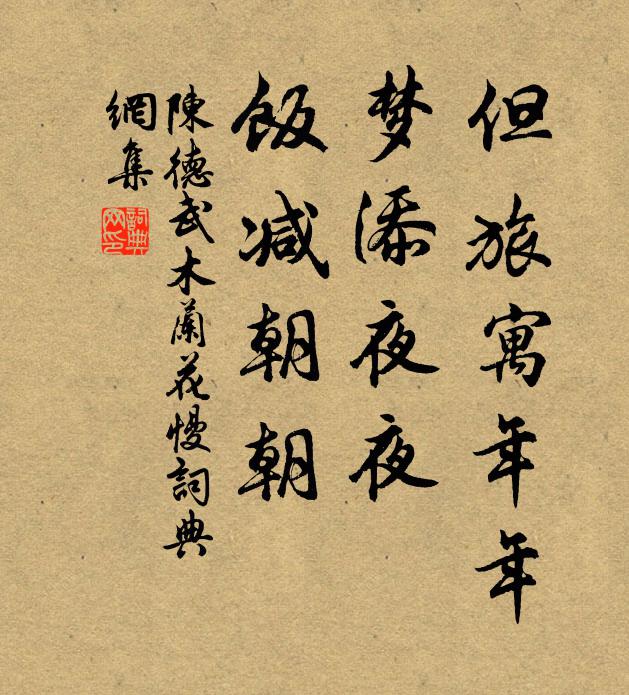 但旅寓年年
梦添夜夜
飯减朝朝
陳德武木蘭花慢詞典
網集
詞典
网印